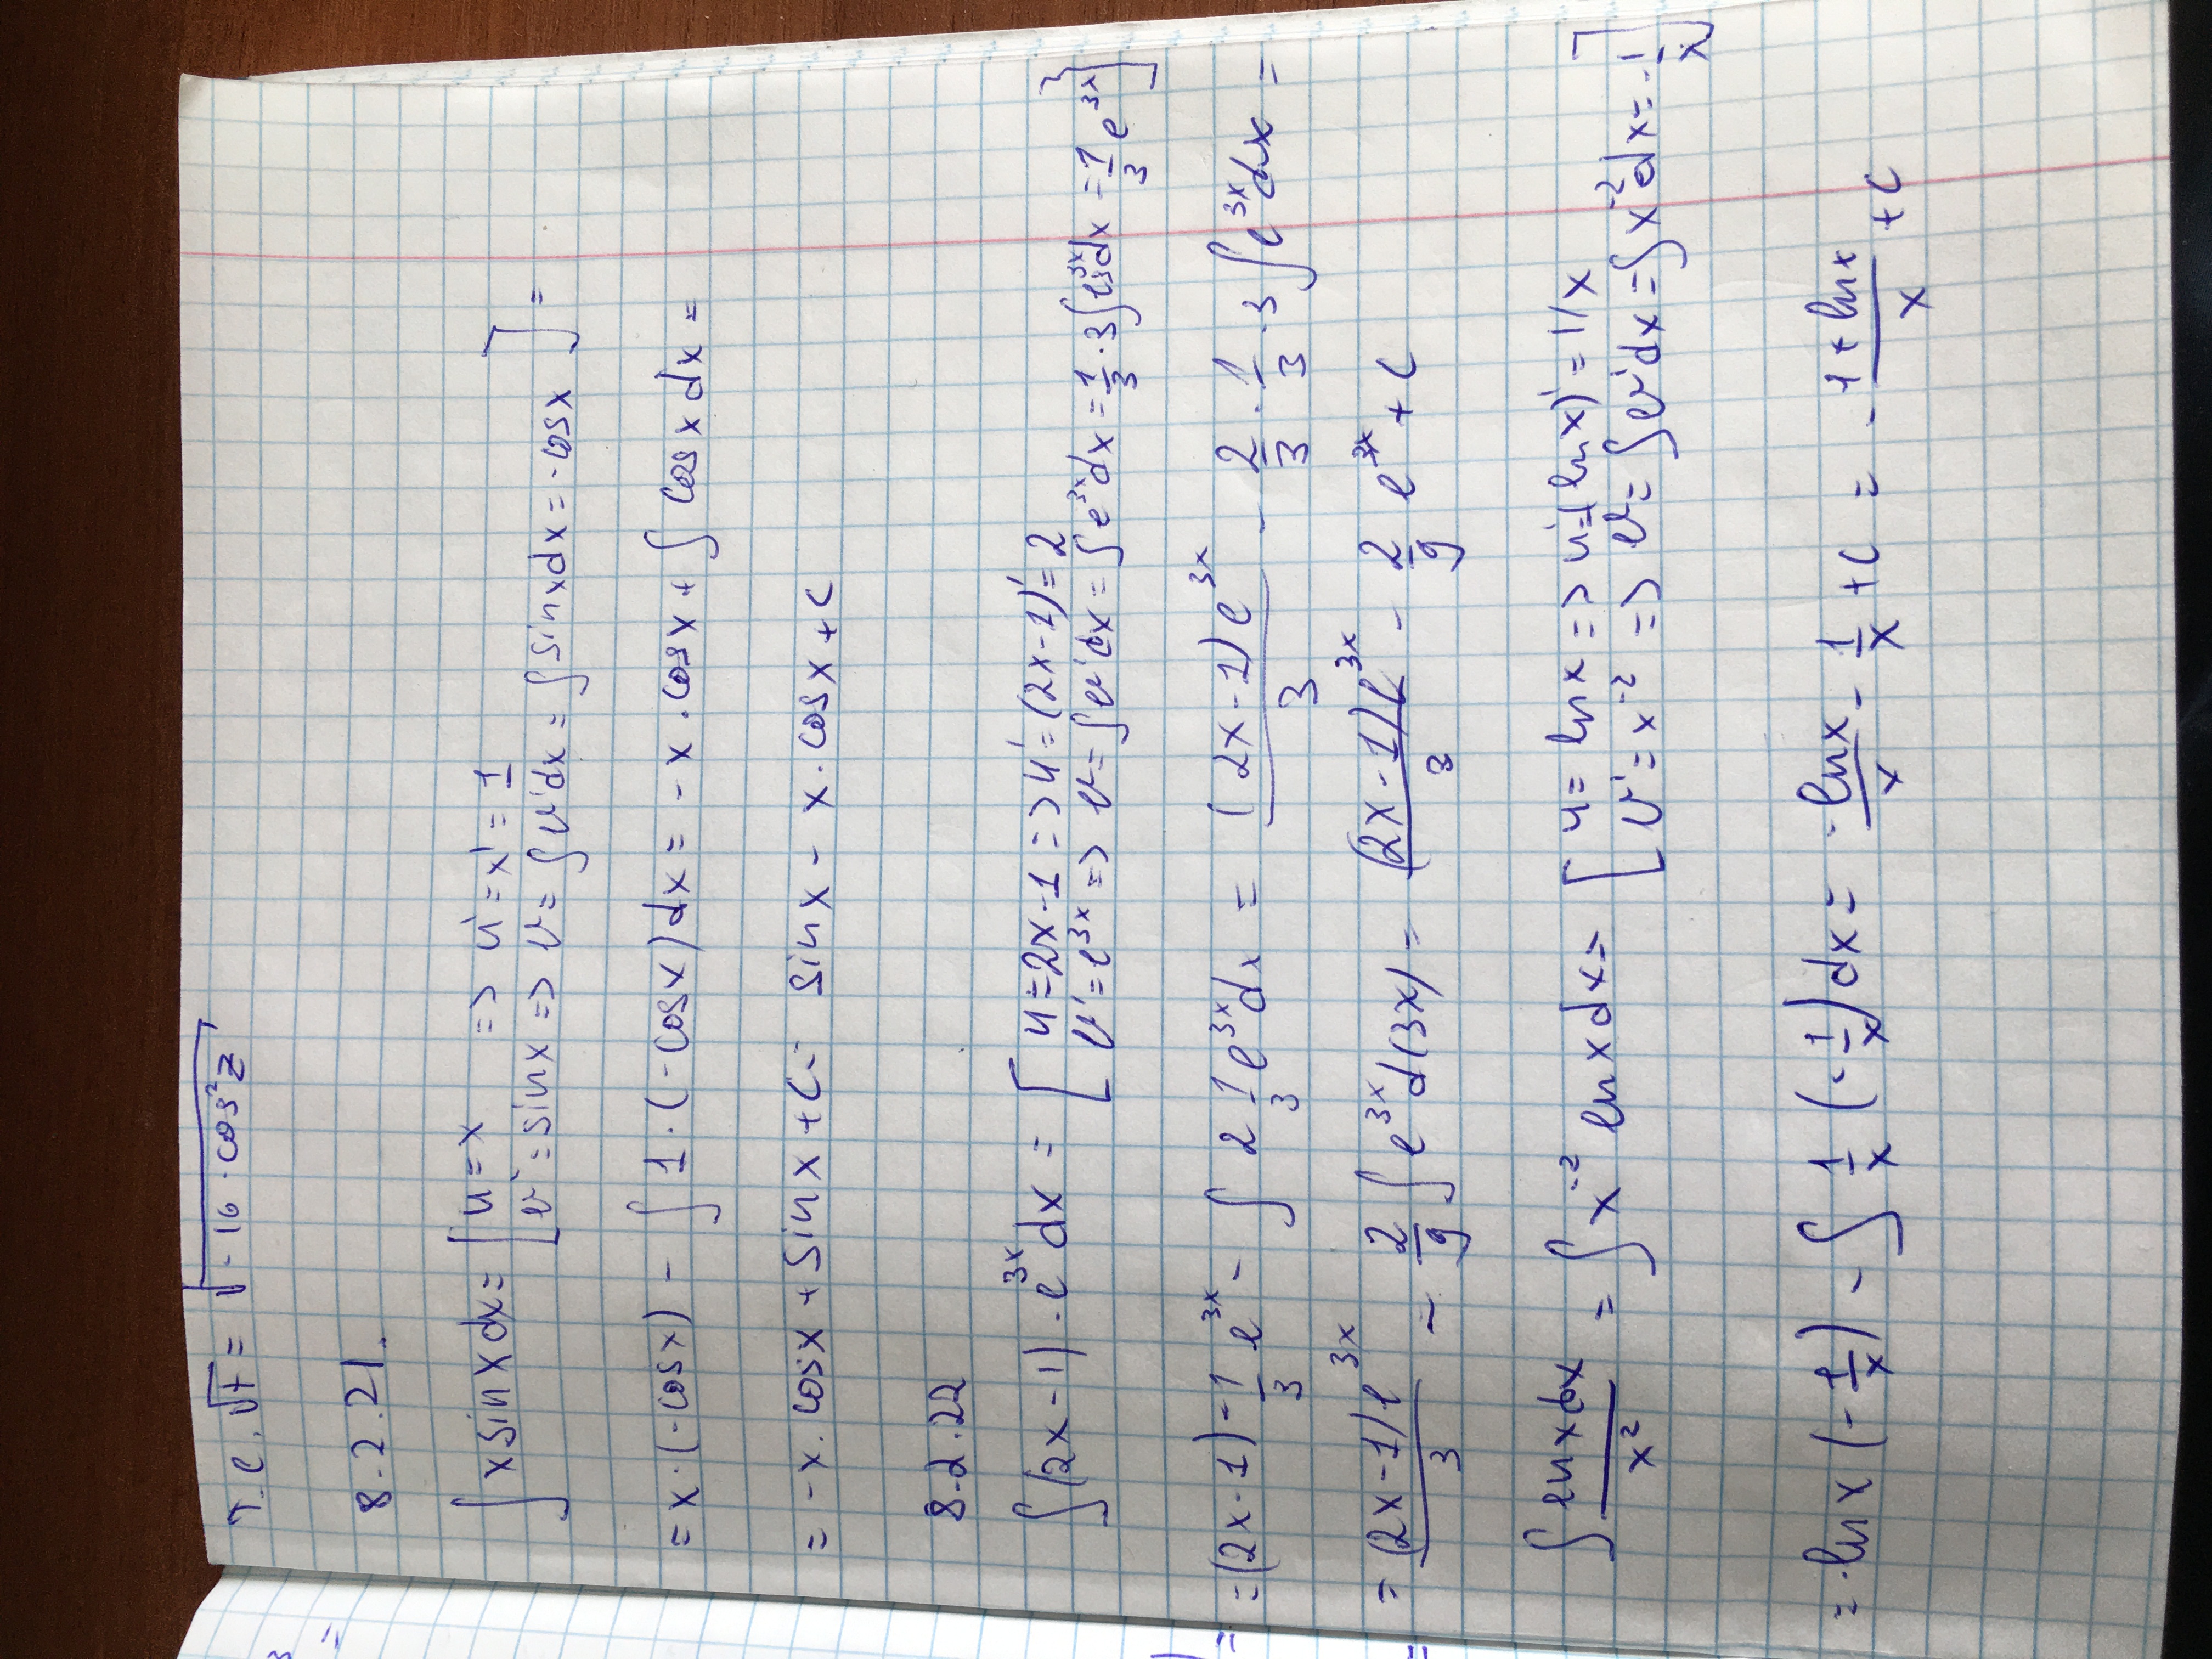 т.е. √t = √-16 · cos²z
8.2.21.
∫ x sin x dx = [ u = x => u' = x' = 1
v' = sin x => v = ∫ v' dx = ∫ sin x dx = -cos x ] =
= x · (-cos x) - ∫ 1 · (-cos x) dx = - x · cos x + ∫ cos x dx =
= -x · cos x + sin x + C = sin x - x · cos x + C
8.2.22
∫ (2x - 1) · e^3x dx = [ u = 2x - 1 => u' = (2x-1)' = 2
v' = e^3x => v = ∫ v' dx = ∫ e^3x dx = 1/3 · 3 ∫ e^3x dx = 1/3 e^3x ]
= (2x - 1) - 1/3 e^3x - ∫ 2 1/3 e^3x dx = (2x - 1) e^3x / 3 - 2/3 · 1/3 · 3 ∫ e^3x dx =
= (2x - 1) e^3x / 3 - 2/9 ∫ e^3x d(3x) = (2x - 1) e^3x / 3 - 2/9 e^3x + C
∫ ln x dx / x² = ∫ x^-2 ln x dx = [ u = ln x => u' = (ln x)' = 1/x
v' = x^-2 => v = ∫ v' dx = ∫ x^-2 dx = -1/x ]
= ·ln x (-1/x) - ∫ 1/x (-1/x) dx = -ln x / x - 1/x + C = - 1 + ln x / x + C